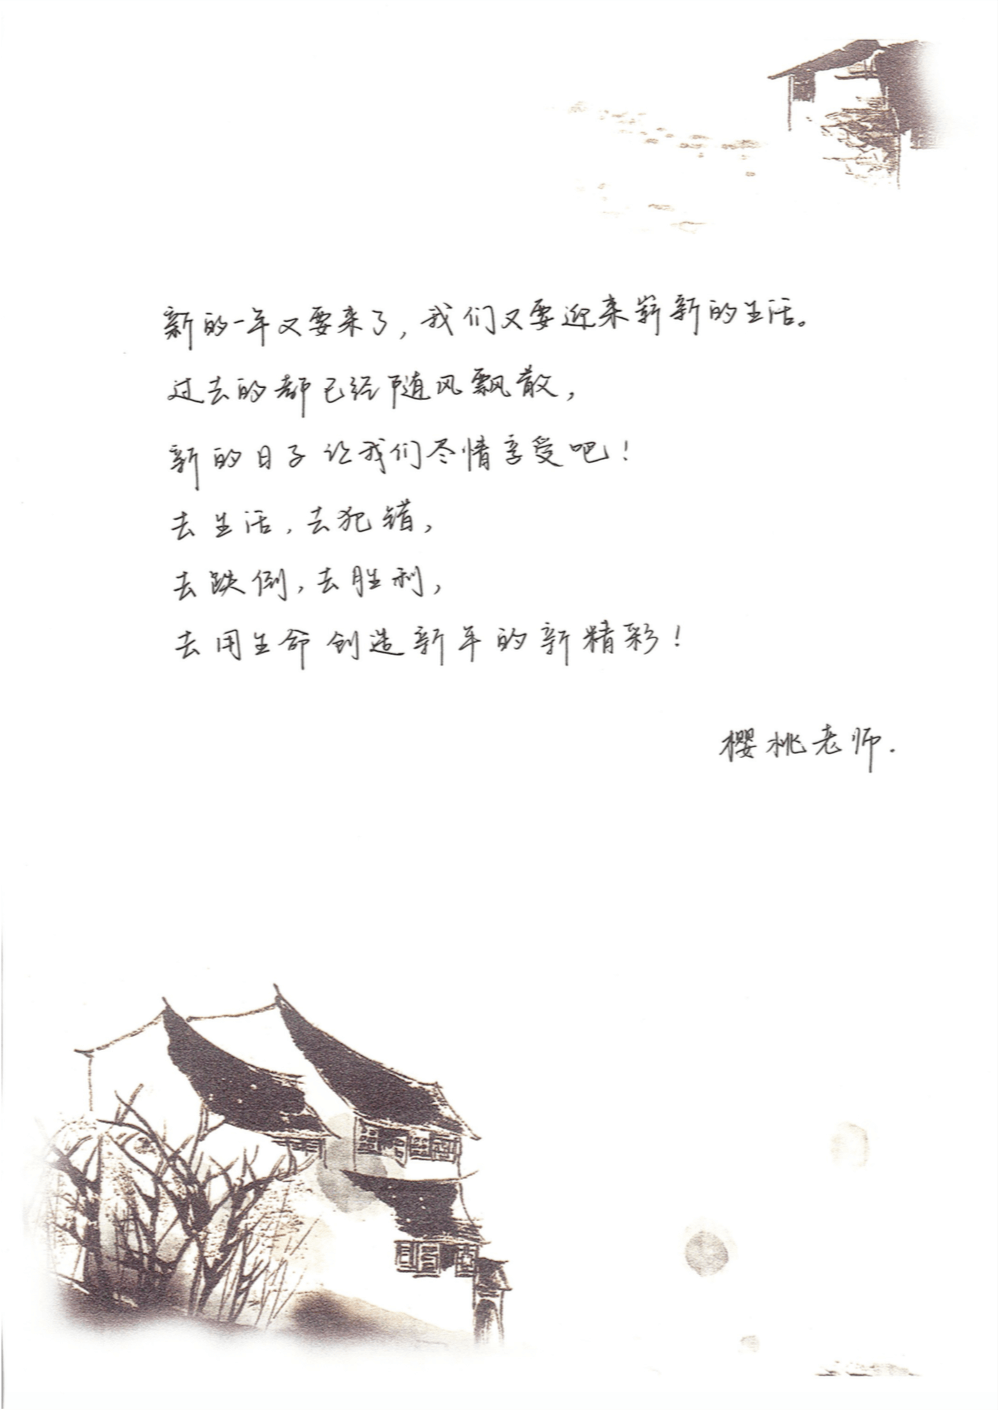 新的一年又要来了，我们又要迎来崭新的生活。
过去的都已经随风飘散，
新的日子让我们尽情享受吧！
去生活，去犯错，
去跌倒，去胜利，
去用生命创造新年的新精彩！
樱桃老师.